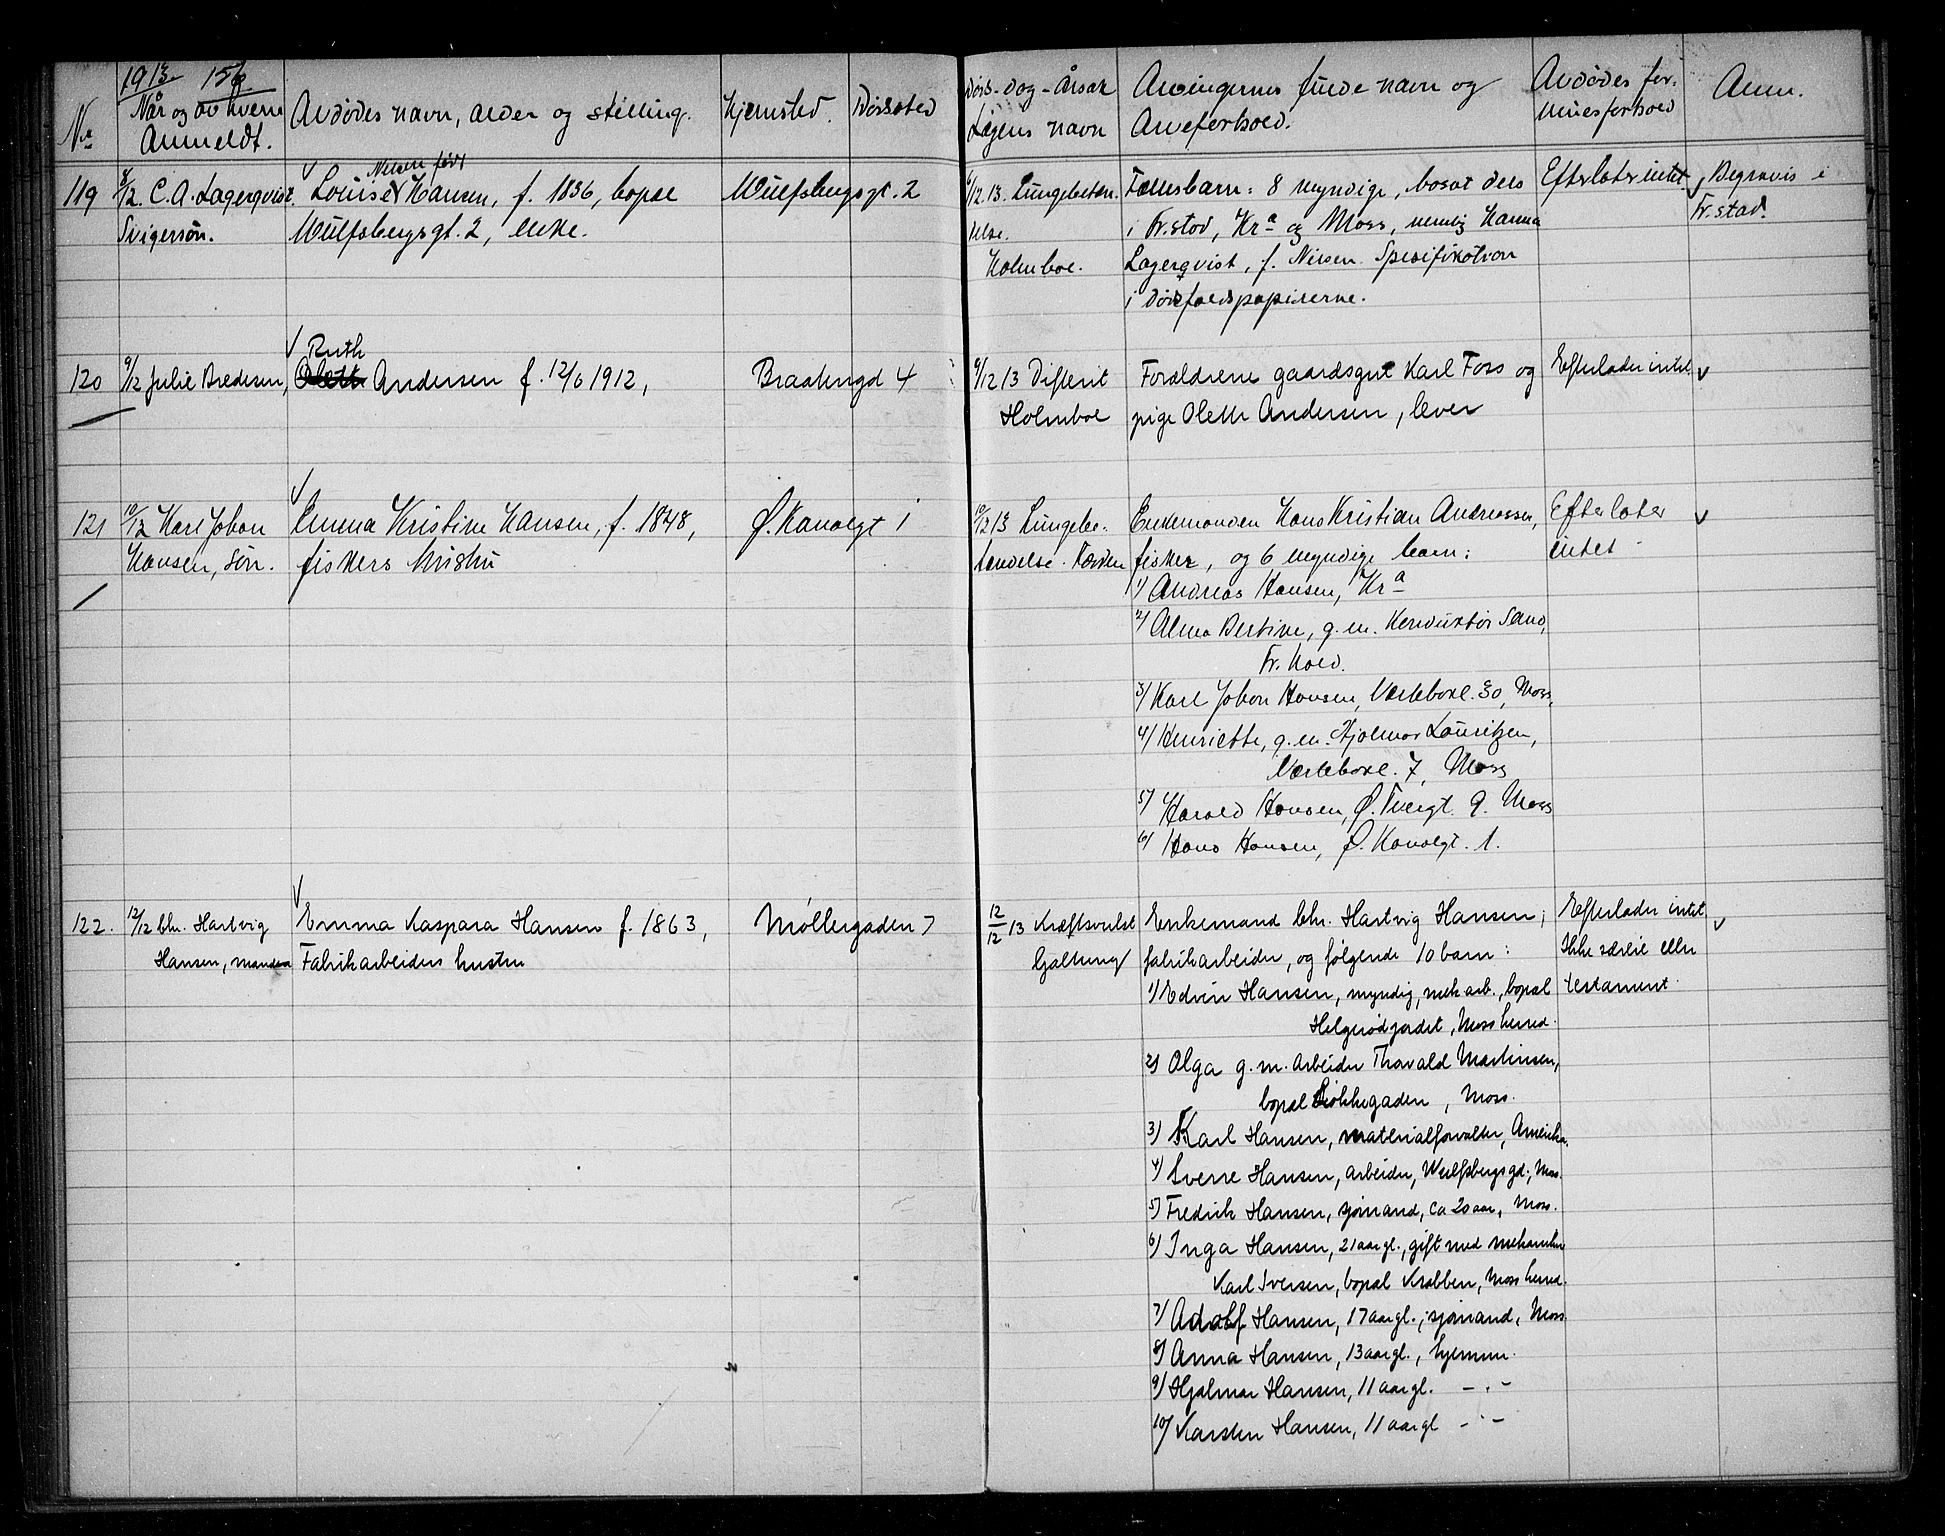 1913. 156.
Nr. Når og av hvem Anmeldt. Avdødes navn, alder og stilling. Hjemsted. Dødssted Døds-dag-årsak Lægens navn Arvingernes fulde navn og Arveforhold. Avdødes formuesforhold Anm.
119 8/12. C. A. Lagerqvist. Svigersøn.
Nilsen født
Louise Hansen, f. 1836, bopæl
Wulfsbergsgt. 2, enke.
Wulfsbergsgt. 2
6/12.13. Lungebetændelse.
Holmboe.
Fællesbarn: 8 myndige, bosat dels
i Fr.stad, Kra og Moss, nemlig Hanna
Lagerqvist, f. Nilsen. Spesifikation
i dødsfaldspapirerne.
Efterlater intet
Begraves i
Fr.stad.
120 9/12 Julie Bredesen,
Ruth
Oleth Andersen f. 12/6 1912,
Braatengd 4
9/12 13 Difterit
Holmboe
Forældrene gaardsgut Karl Foss og
pige Oleth Andersen, lever
Efterlader intet
121 10/12 Karl Johan
Hansen, søn.
Emma Kristine Hansen, f. 1848,
fiskers hustru
Ø. Kanalgt 1
10/12 13 Lungebetændelse.
Enkemanden Hans Kristian Andreassen,
fisker, og 6 myndige barn:
1) Andreas Hansen, Kra
2) Alma Bertine, g. m. Konduktør Sand,
Fr.hald.
3) Karl Johan Hansen, Værlebakk. 30, Moss,
4) Henriette, g. m. Hjalmar Lauritzen,
Værlebakk. 7, Moss
5) Harald Hansen, Ø. Tvergt. 9. Moss
6) Hans Hansen, Ø. Kanalgt. 1.
Efterlater
intet
122. 12/12 Chr. Hartvig
Hansen, manden
Emma Kaspara Hansen f. 1863,
Fabrikarbeiders hustru
Møllergaden 7
12/12 13 Kræftsvulst
Galtung
Enkemand Chr. Hartvig Hansen;
fabrikarbeider, og følgende 10 barn:
1) Edvin Hansen, myndig, mek arb., bopæl
Helgerødjordet, Moss herred.
2) Olga g. m. Arbeider Thorvald Martinsen,
bopæl Klokkegaden, Moss.
3) Karl Hansen, materialforvalter, Amerika.
4) Sverre Hansen, arbeider, Wulfsbergs gd., Moss.
5) Fredrik Hansen, sjømand, ca 20 aar, Moss.
6) Inga Hansen, 21 aar gl., gift med mekaniker
Karl Iversen, bopæl Krabben, Moss herred.
7) Adolf Hansen, 17 aar gl., sjømand, Moss
8) Anna Hansen, 13 aar gl., hjemme.
9) Hjalmar Hansen, 11 aar gl. – . –
10) Karsten Hansen, 11 aar gl – . –
Efterlader intet
Ikke særeie eller
testament.